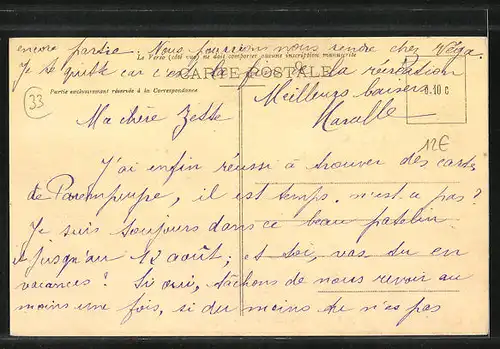 encore partie. Nous pourrions nous rendre chez Véga.
Le Verso (côté vue) ne doit comporter aucune inscription manuscrite
Je te quitte car c'est la fin de la récréation
CARTE POSTALE
Partie exclusivement réservée à la Correspondance
Meilleurs baisers
0.10 c
33
Ma chère Zette
12€
J'ai enfin réussi à trouver des cartes
de Parempuyre, il est temps, n'est-ce pas ?
Je suis toujours dans ce beau patelin
jusqu'au 12 août ; et toi, vas tu en
vacances ? Si oui, tâchons de nous revoir au
moins une fois, si du moins tu n'es pas